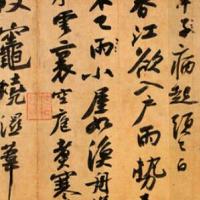 年子病起頭已白
春江欲入戶雨勢
不已雨小屋如漁舟
水雲裏空庖煮寒
破竈燒濕葦